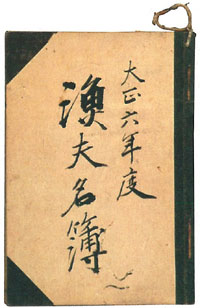 大正六年度
漁夫名簿